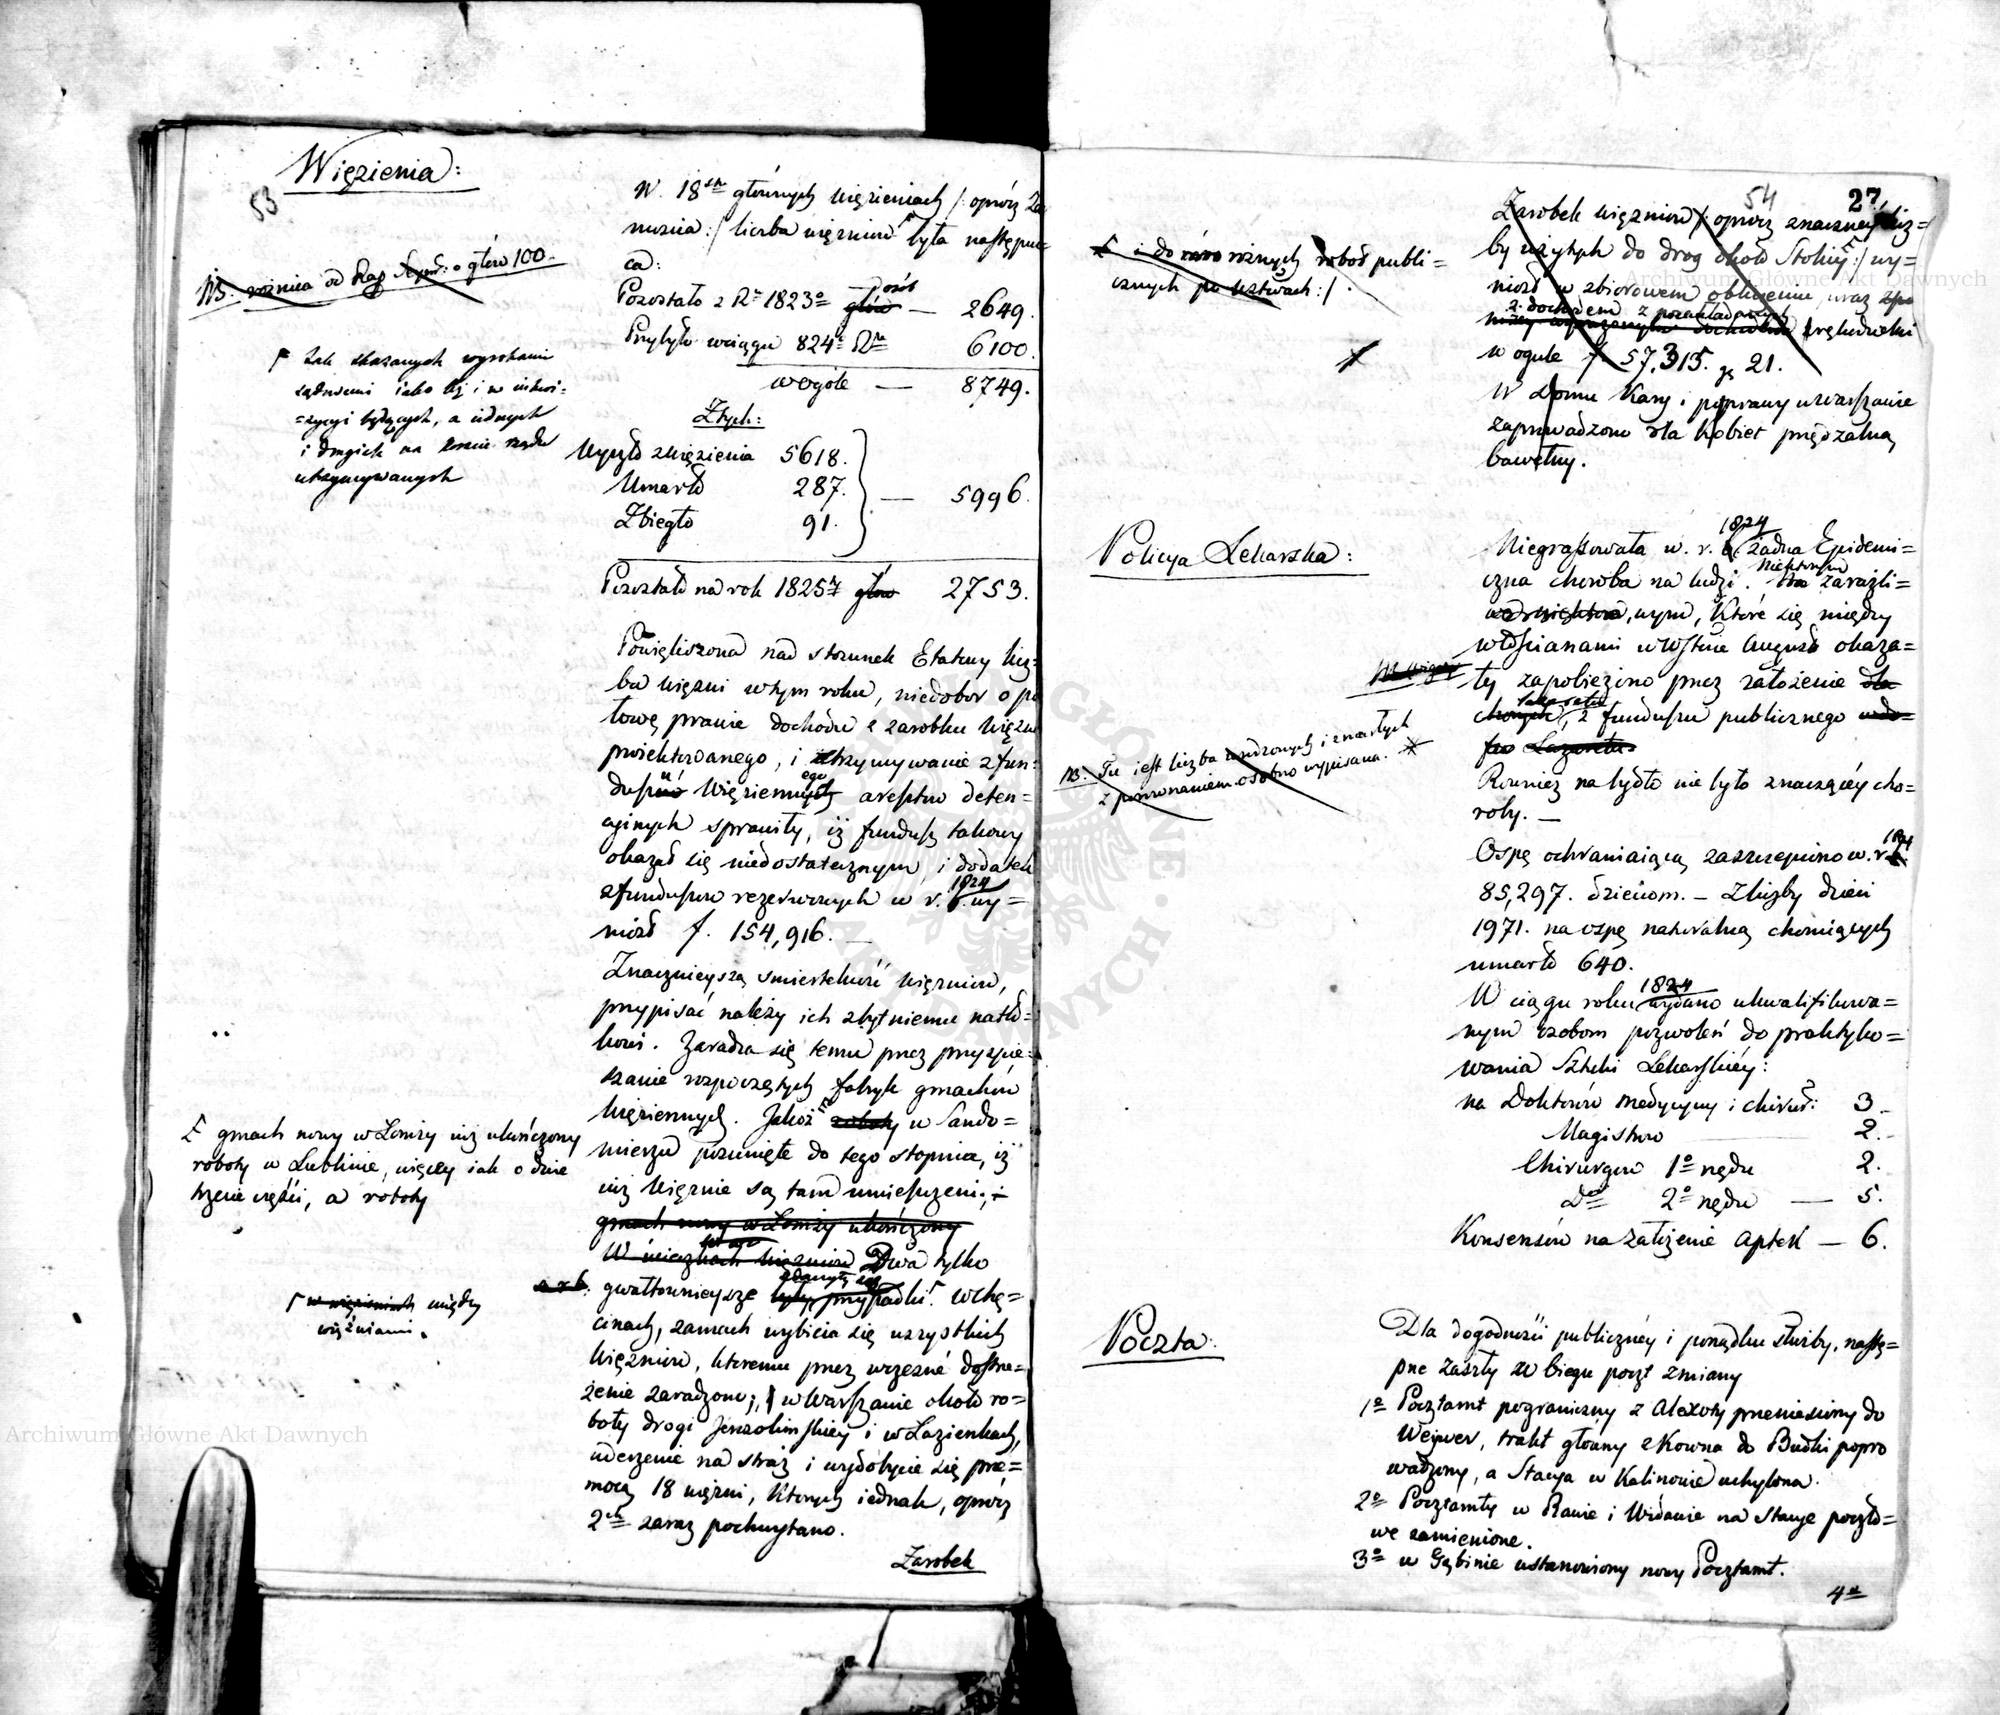 Więzienia:
53
NB. roznica od Rap o głow 100.
Γ tak skazanych wyrokami
sądowemi iako też i w inkwi=
=zycyi będących, a iednych
i drugich na koszcie rządu
utrzymywanych
W 18stu głównych więzieniach /: oprócz Za
mościa :/ liczba więzniów Γ była następuią
ca:
Pozostało z Ru 1823o głów osób — 2649.
Przybyło wciągu 824o Rku 6100.
wogóle — 8749.
Ztych:
Wyszło zwięzienia 5618.
Umarło 287. — 5996.
Zbiegło 91.
Pozostało na rok 1825ty głów 2753.
Powiększona nad stosunek Etatowy licz=
ba więzni wtym roku, niedobor o po
łowę prawie dochodu z zarobku więzni
proiektowanego, i utrzymywanie zfun=
duszu Więziennego aresztów deten=
cyinych sprawiły, iż fundusz takowy
okazał się niedostatecznym, i dodatek
zfunduszów rezerwowych w r. 1824 wy=
niósł f. 154,916. —
Znacznieyszą smiertelność więzniów,
przypisać należy ich zbytniemu natło=
kowi. Zaradza się temu przez przyspie=
szanie rozpoczętych fabryk gmachów
Więziennych. Jakoż Γ roboty w Sando=
mierzu posunięte do tego stopnia, iż
iuż Więznie są tam umieszczeni; i
gmach nowy w Łomży ukończony
W ucieczkach więzniów Dwa tylko
gwałtownieysze były przypadki zdarzyły się Γ. wChę=
cinach, zamach wybicia się wszystkich
Więzniów, któremu przez wczesne dostrze=
żenie zaradzono; i w Warszawie około ro=
boty drogi Jerozolimskiey i w Łazienkach,
uderzenie na straż i wydobycie się prze=
mocą 18 więzni, których iednak, oprócz
2ch zaraz pochwytano.
Zarobek
Γ gmach nowy w Łomży iuż ukończony
roboty w Lublinie, więcey iak o dwie
trzecie części, a roboty
Γ w więzieniach między
więźniami.
54
27.
Γ i do rożnych robot publi=
cznych po :/.
Zarobek więzniów /: oprócz znaczney licz=
by użytych do drog około Stolicy Γ :/ wy=
niosł w zbiorowem obliczeniu wraz
z dochodem z
w ogule f. 57,315. gr 21.
W Domu Kary i poprawy wWarszawie
zaprowadzono dla kobiet przędzalnią
bawełny.
Policya Lekarska:
Niegrassowała w. r. 1824 żadna Epidemi=
czna choroba na ludzi. Niektorym zaraźli=
wym, które się między
włościanami wWstwie August. okaza=
ły zapobieżono przez założenie dla
chorych, z funduszu publicznego
Lazaretu.
Rownież na bydło nie było znaczącéy cho=
roby. —
Ospę ochraniaiącą zaszczepiono w. r. 1824
85,297. dzieciom. — Zliczby dzieci
1971. na ospę naturalną choruiących
umarło 640.
W ciągu roku 1824 wydano ukwalifikowa=
nym osobom pozwoleń do praktyko=
wania Sztuki Lekarskiéy:
na Doktorów Medycyny i chirur: 3.
Magistrów 2.
Chirurgów 1o rzędu 2.
Do 2o rzędu — 5.
Konsensów na założenie Aptek — 6.
NB. Tu iest liczba urodzonych i zmarłych
z porownaniem osobno wypisana.
Poczta:
Dla dogodności publicznéy i porządku służby, nastę=
pne zaszły w biegu poczt zmiany
1o Pocztamt pograniczny z Alexoty przeniesiony do
Wejwer, trakt główny zKowna do Budki popro
wadzony, a Stacya w Kalinowie uchylona.
2o Pocztamty w Rawie i Widawie na Stacye poczto=
we zamienione.
3o w Gąbinie ustanowiony nowy Pocztamt.
4o
Archiwum Główne Akt Dawnych
Archiwum Główne Akt Dawnych